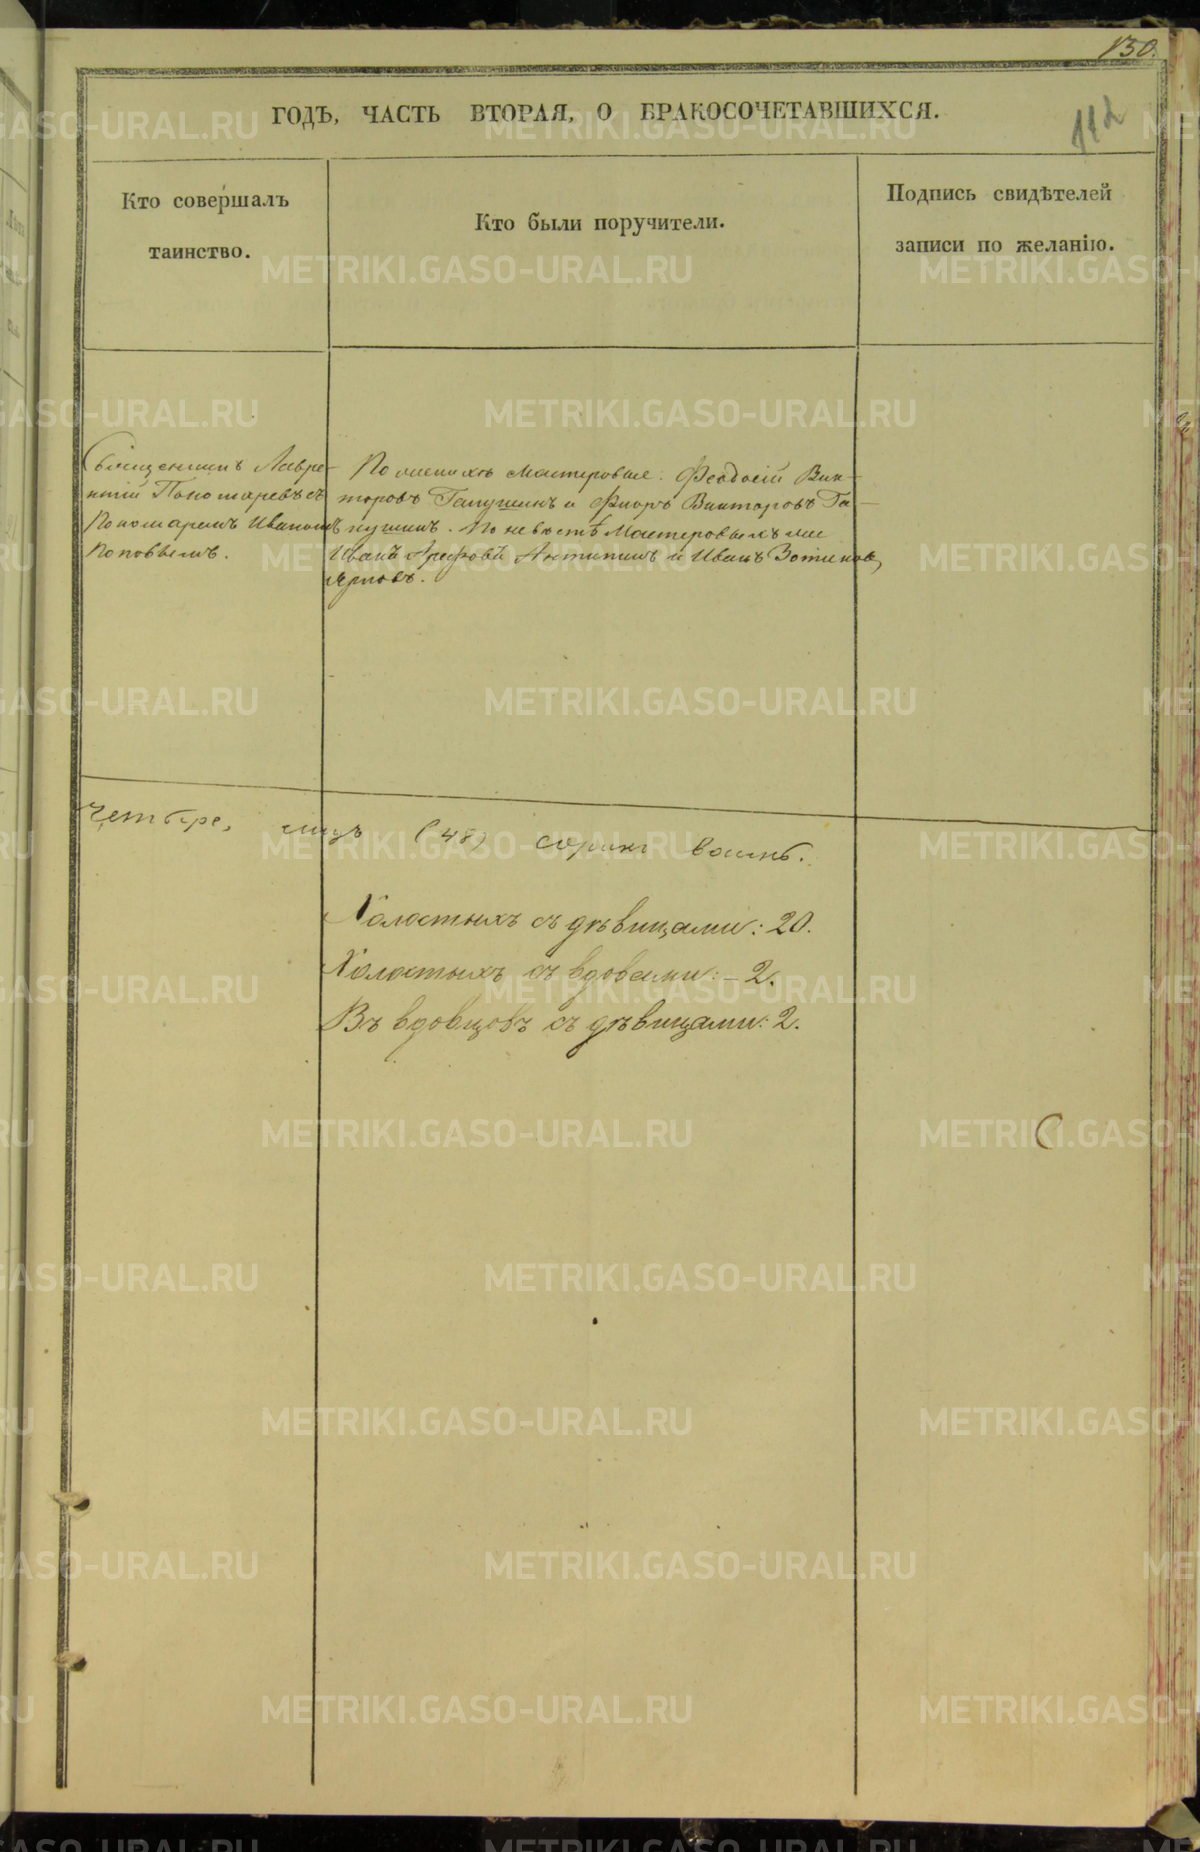 130.
112
ГОДЪ, ЧАСТЬ ВТОРАЯ, О БРАКОСОЧЕТАВШИХСЯ.
Кто совершалъ
таинство.
Кто были поручители.
Подпись свидѣтелей
записи по желанію.
Священникъ Лавре-
нтій Пономаревъ съ
Пономаремъ Иваномъ
Поповымъ.
По женихѣ Мастеровые: Феодосій Вик-
торовъ Галушинъ и Флоръ Викторовъ Га-
лушинъ. По невѣстѣ Мастеровые
Иванъ Антипинъ и Иванъ Зотиковъ
Четыре, лицъ (48) сорокъ восмь.
Холостыхъ съ дѣвицами: 20.
Холостыхъ съ вдовами: – 2.
Въ вдовцовъ съ дѣвицами: 2.
METRIKI.GASO-URAL.RU